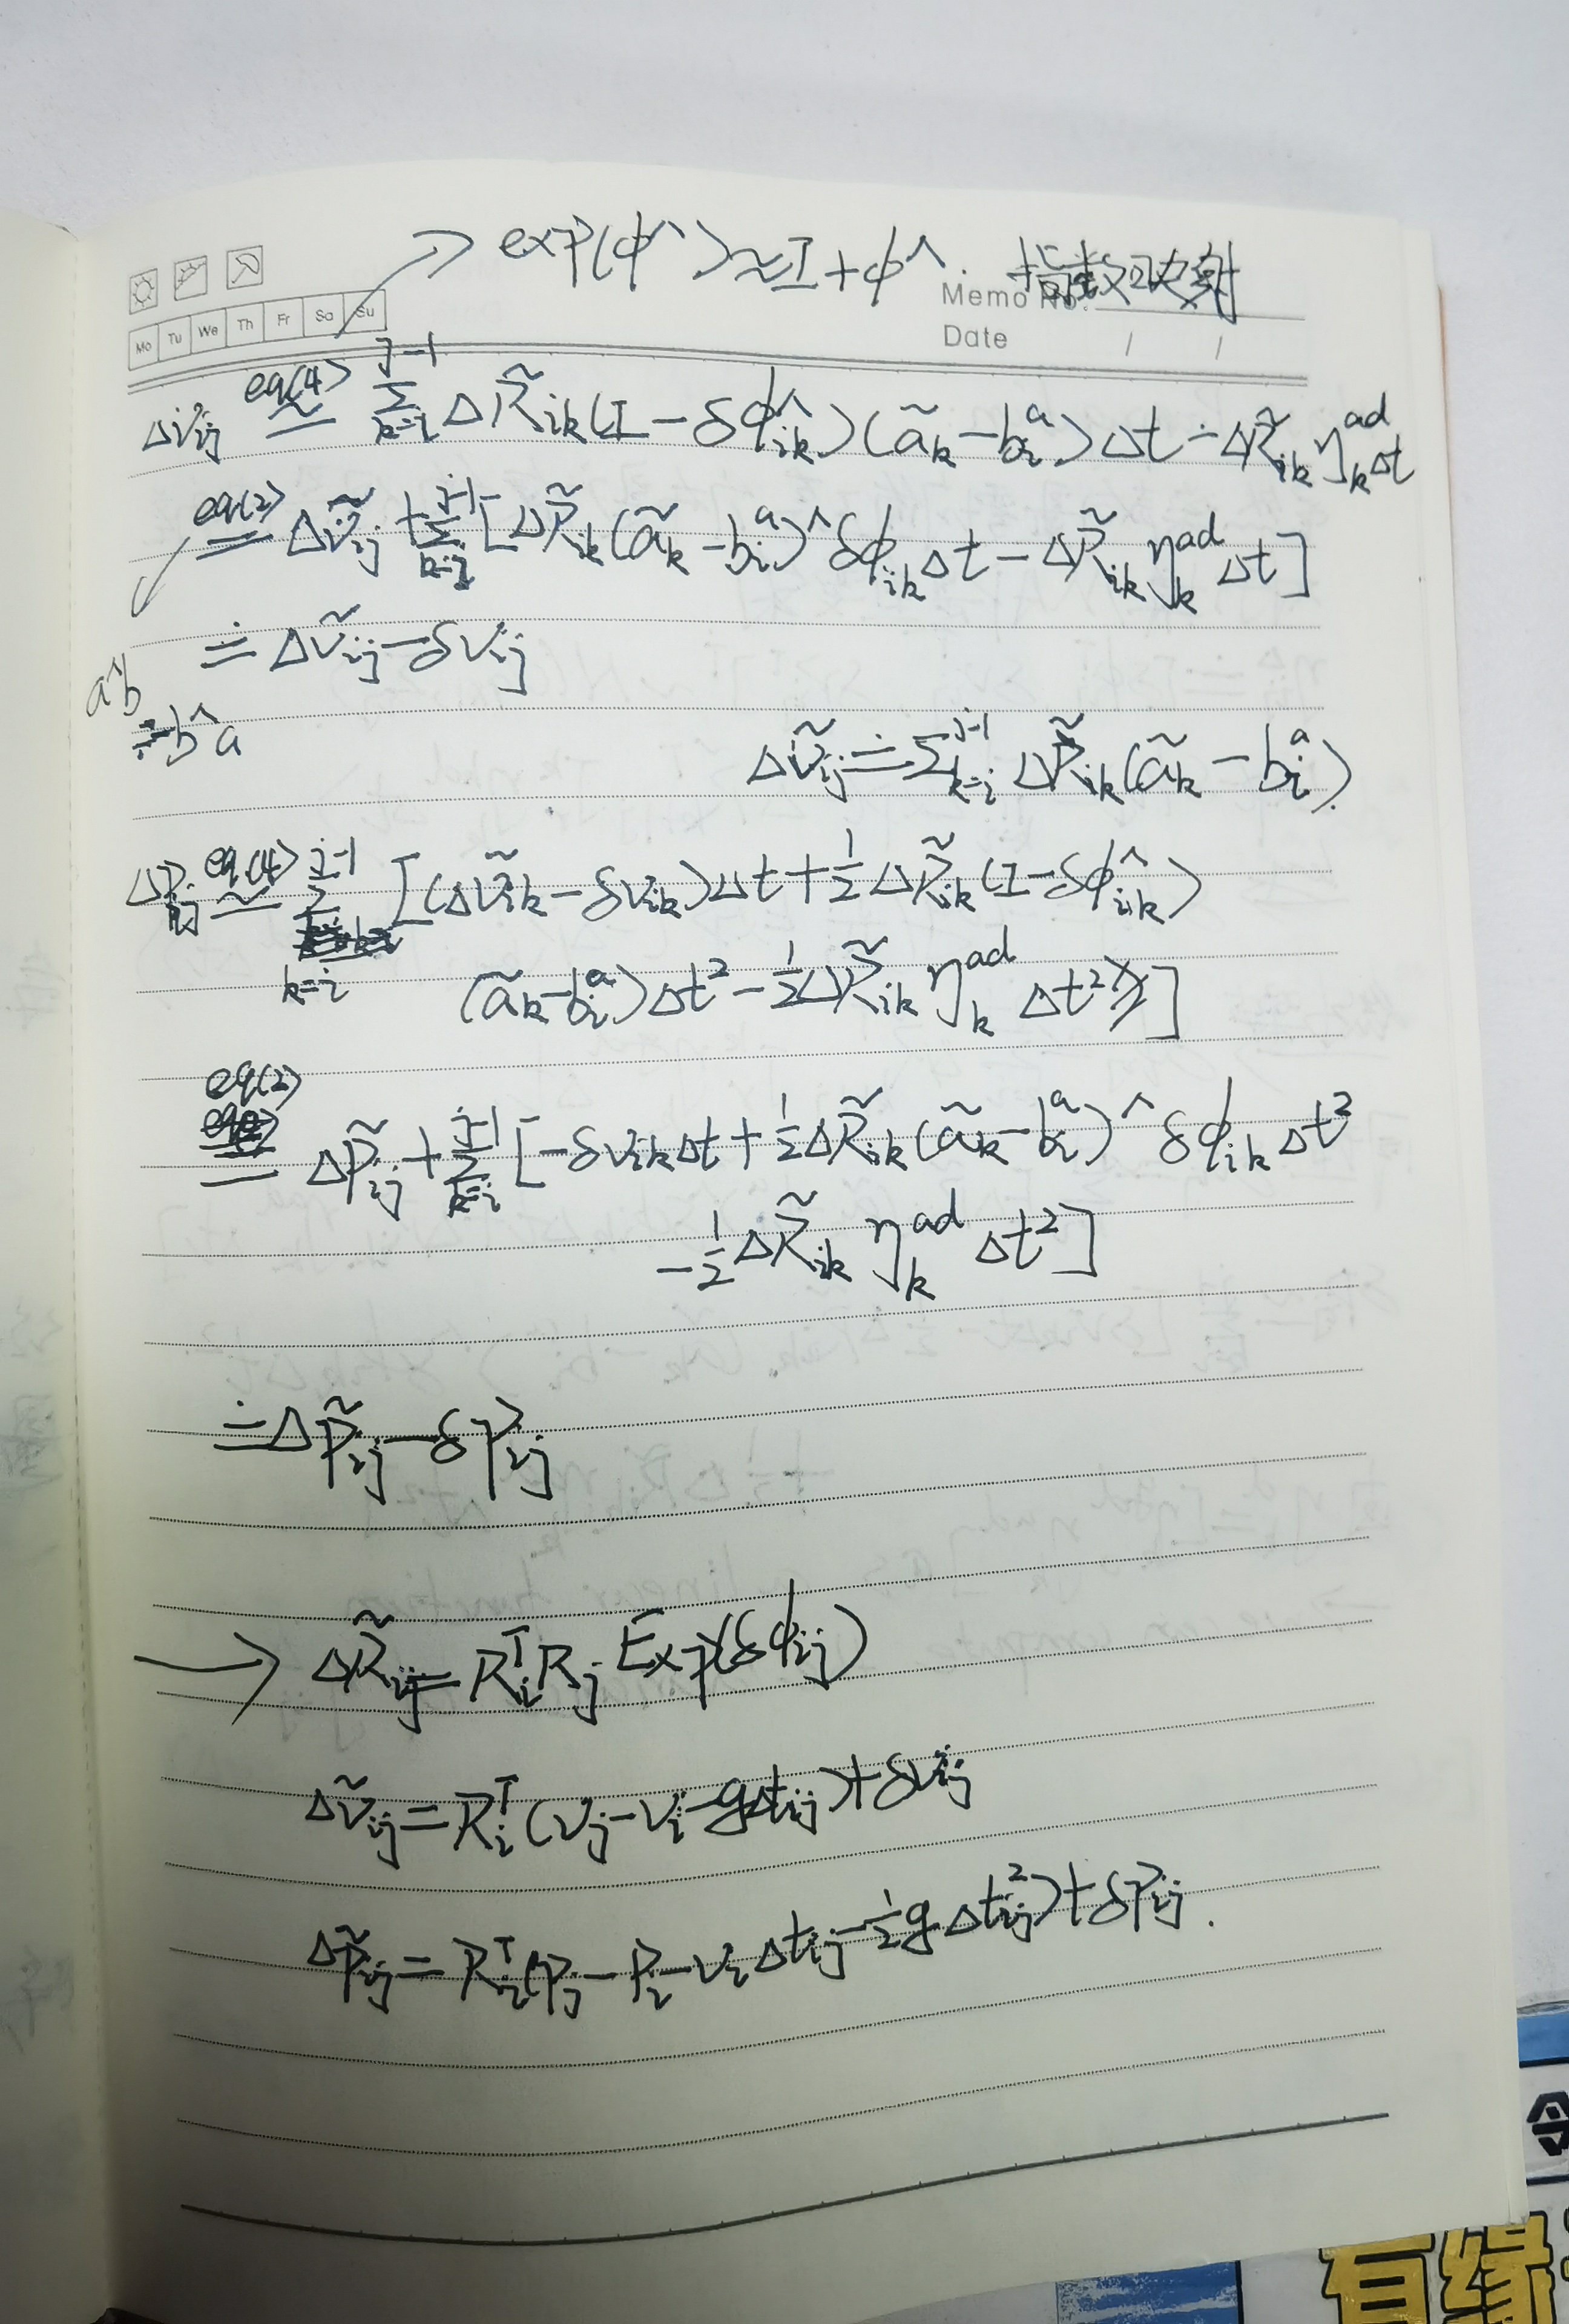 → exp(φ^) ≈ I + φ^. 指数映射
Memo No.
Mo Tu We Th Fr Sa Su
Date / /
Δv_ij ≃^{eq(4)} Σ_{k=i}^{j-1} ΔR̃_ik (I - δφ_ik^) (ã_k - b_i^a) Δt - ΔR̃_ik η_k^{ad} Δt
=^{eq(2)} Δṽ_ij + Σ_{k=i}^{j-1} [ΔR̃_ik (ã_k - b_i^a)^ δφ_ik Δt - ΔR̃_ik η_k^{ad} Δt]
≐ Δṽ_ij - δv_ij
a^b
= -b^a
Δṽ_ij ≐ Σ_{k=i}^{j-1} ΔR̃_ik (ã_k - b_i^a).
ΔP_ij ≃^{eq(4)} Σ_{k=i}^{j-1} [(Δṽ_ik - δv_ik) Δt + 1/2 ΔR̃_ik (I - δφ_ik^)
(ã_k - b_i^a) Δt² - 1/2 ΔR̃_ik η_k^{ad} Δt²]
=^{eq(2)} ΔP̃_ij + Σ_{k=i}^{j-1} [-δv_ik Δt + 1/2 ΔR̃_ik (ã_k - b_i^a)^ δφ_ik Δt²
- 1/2 ΔR̃_ik η_k^{ad} Δt²]
≐ ΔP̃_ij - δP_ij
→ ΔR̃_ij = R_i^T R_j Exp(δφ_ij)
Δṽ_ij = R_i^T (v_j - v_i - gΔt_ij) + δv_ij
ΔP̃_ij = R_i^T (P_j - P_i - v_i Δt_ij - 1/2 g Δt_ij²) + δP_ij.
有缘